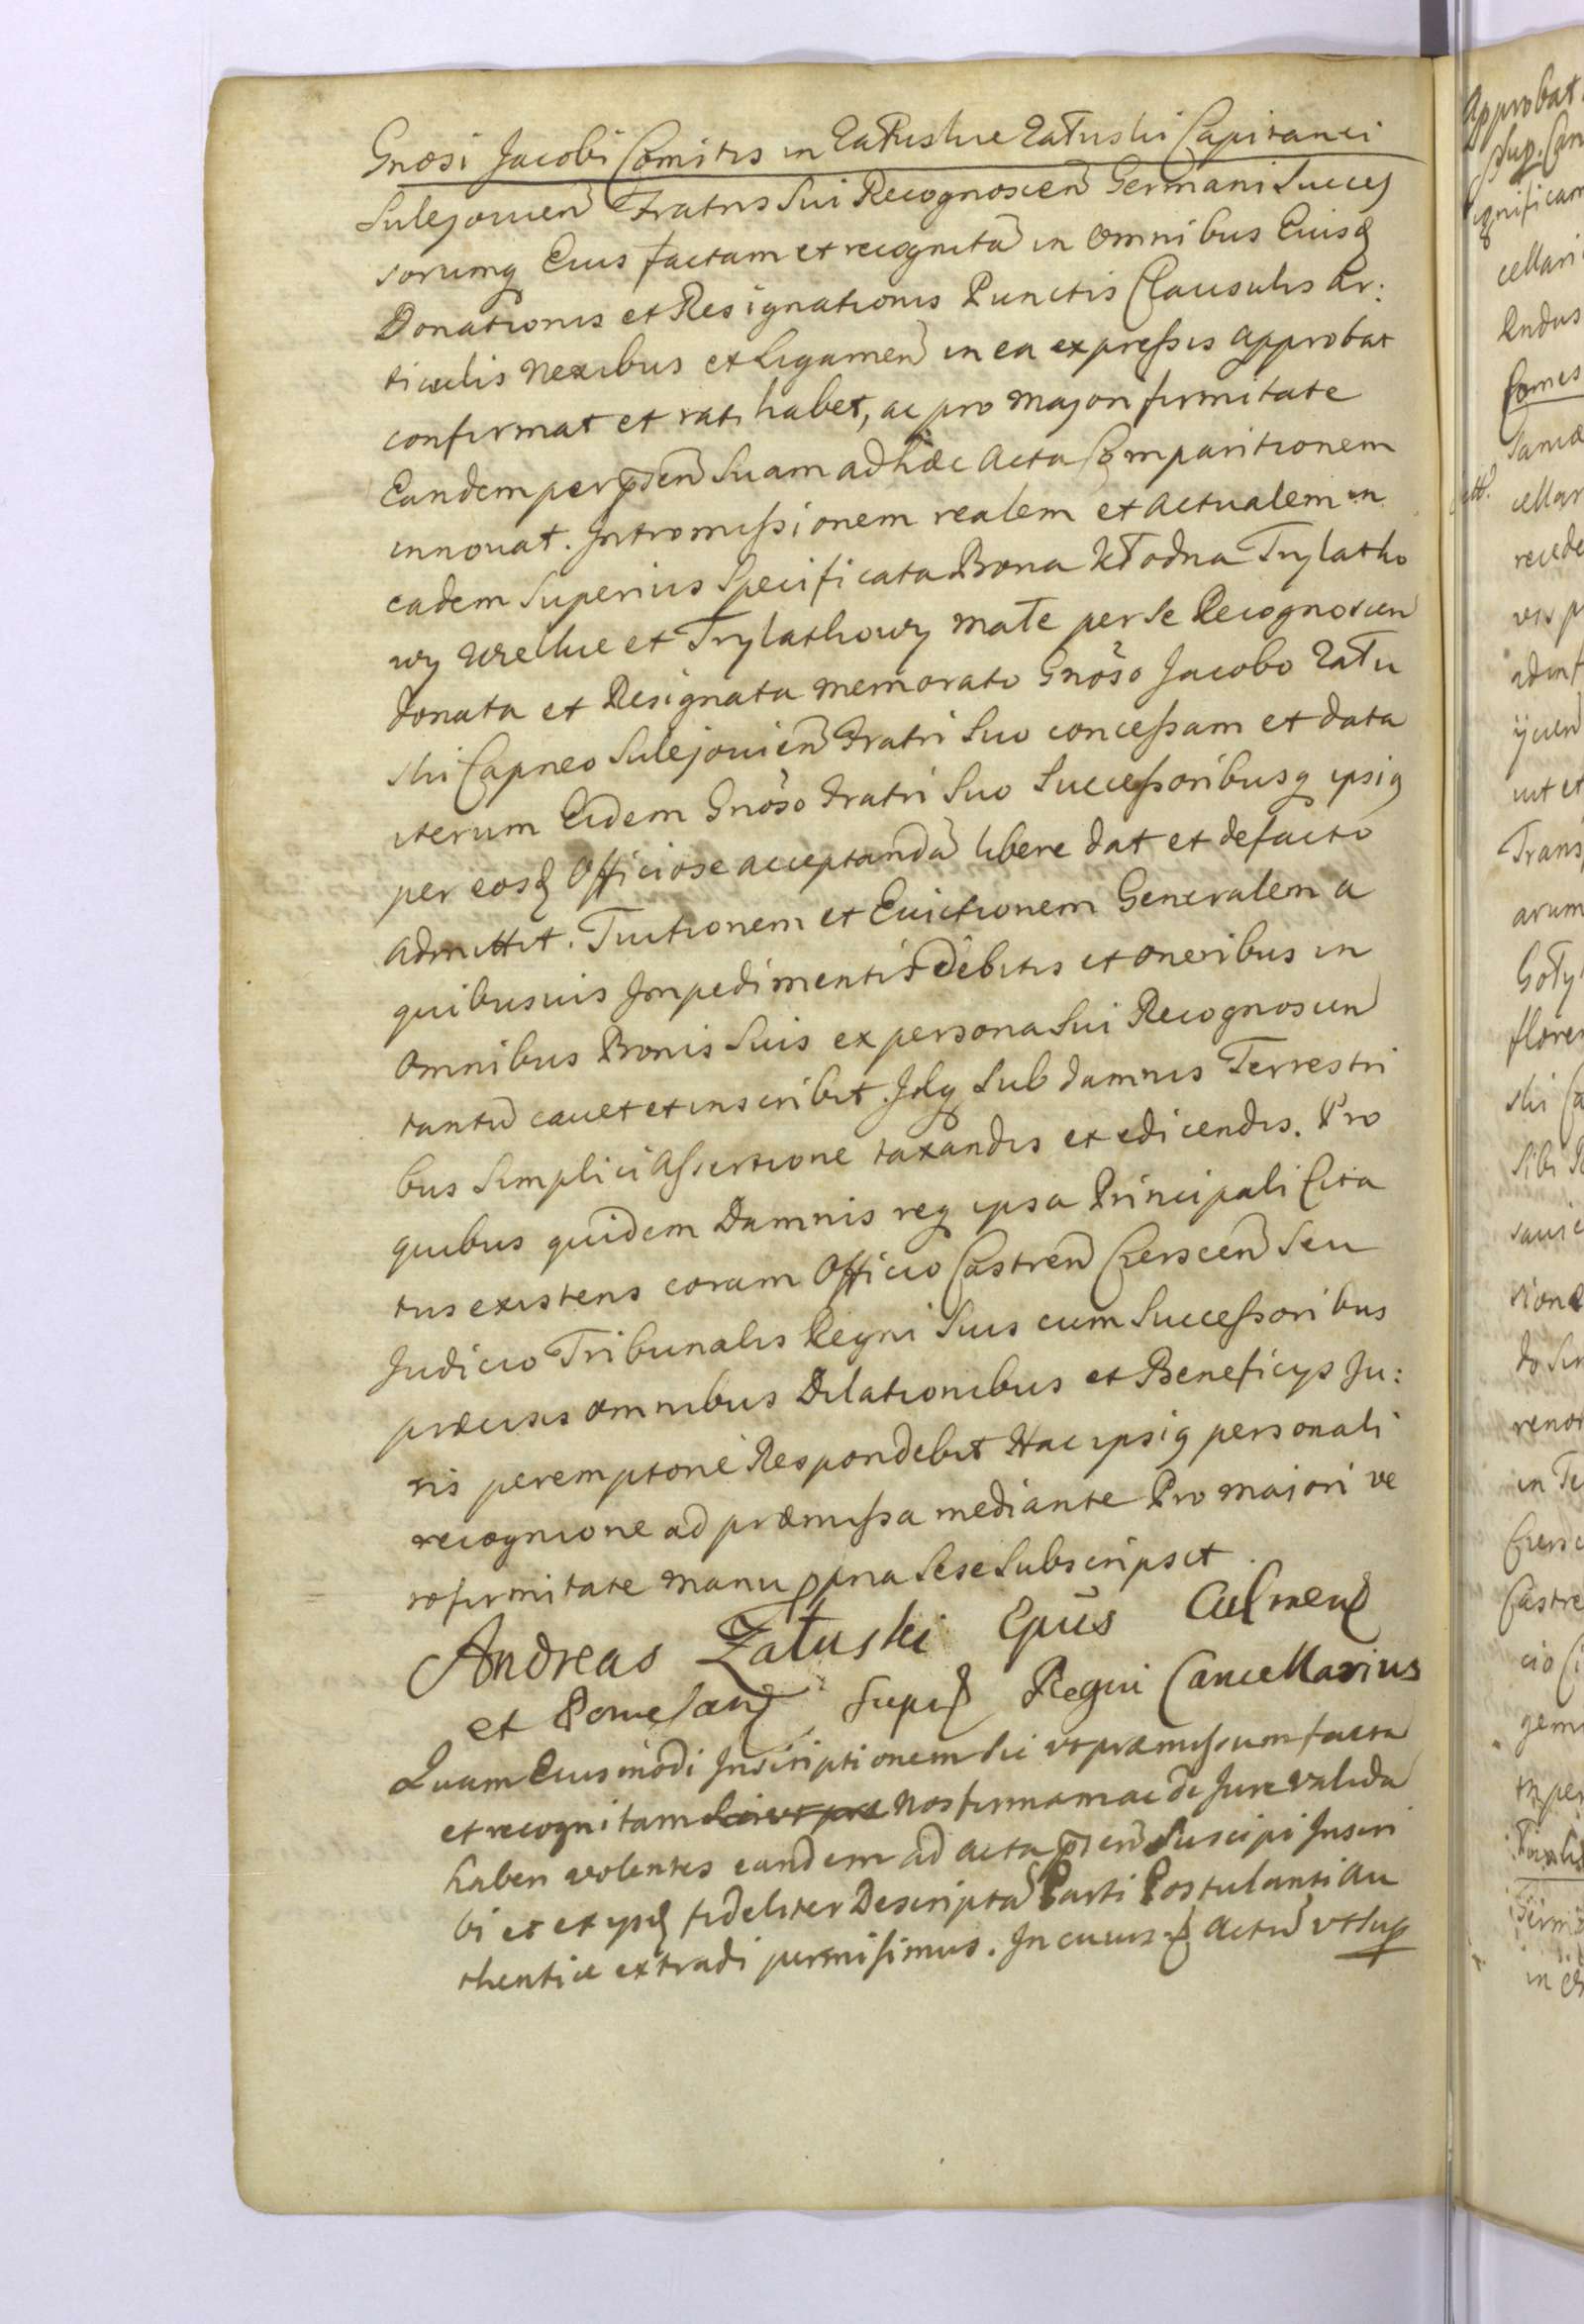 Gnosi Jacobi Comitis in Załuskie Załuski Capitanei
Sulejovien Fratris Sui Recognoscen Germani Succes
sorumq Eius factam et recognita in omnibus Eiusd
Donationis et Resignationis Punctis Clausulis Ar:
ticulis Nexibus et Ligamen in ea expressis approbat
confirmat et ratihabet, ac pro majori firmitate
Eandem per p̄sen Suam ad hæc Acta Comparitionem
innovat. Intromissionem realem et actualem in
eadem Superius Specificata Bona Kłodna Trylatko
wy Wielkie et Trylatkowy Małe per se Recognoscen
donata et Resignata memorato Gnoso Jacobo Zału
ski Capneo Sulejovien Fratri Suo concessam et data
iterum Eidem Gnoso Fratri Suo Successoribusq ipsiq
per eosd Officiose acceptanda libere dat et de facto
admittit. Tuitionem et Evictionem Generalem a
quibusvis Impedimentis debitis et oneribus in
omnibus Bonis Suis ex persona Sui Recognoscen
tantu cavet et inscribit. Idq Sub damnis Terrestri
bus Simplici Assertione taxandis et edicendis. Pro
quibus quidem Damnis req ipsa Principali Cita
tus existens coram Officio Castren Czerscen Seu
Judicio Tribunalis Regni Suis cum Successoribus
præcisis omnibus Dilationibus et Beneficijs Ju:
ris peremptorie Respondebit Hac ipsiq personali
recognione ad præmissa mediante Pro majori ve
ro firmitate manu ppria Sese Subscripsit.
Andreas Załuski Epūs Culmens
et Pomesan Supr Regni Cancellarius
Quam Eiusmodi Inscriptionem Sic ut præmissum facta
et recognitam Sic ut præ Nos firmam ac de Jure valida
haberi volentes eandem ad acta p̄sen Suscipi Inscri
bi et ex ijsd fideliter Descripta Parti Postulanti au
thentice extradi permisimus. In cuius Actu ut Sup